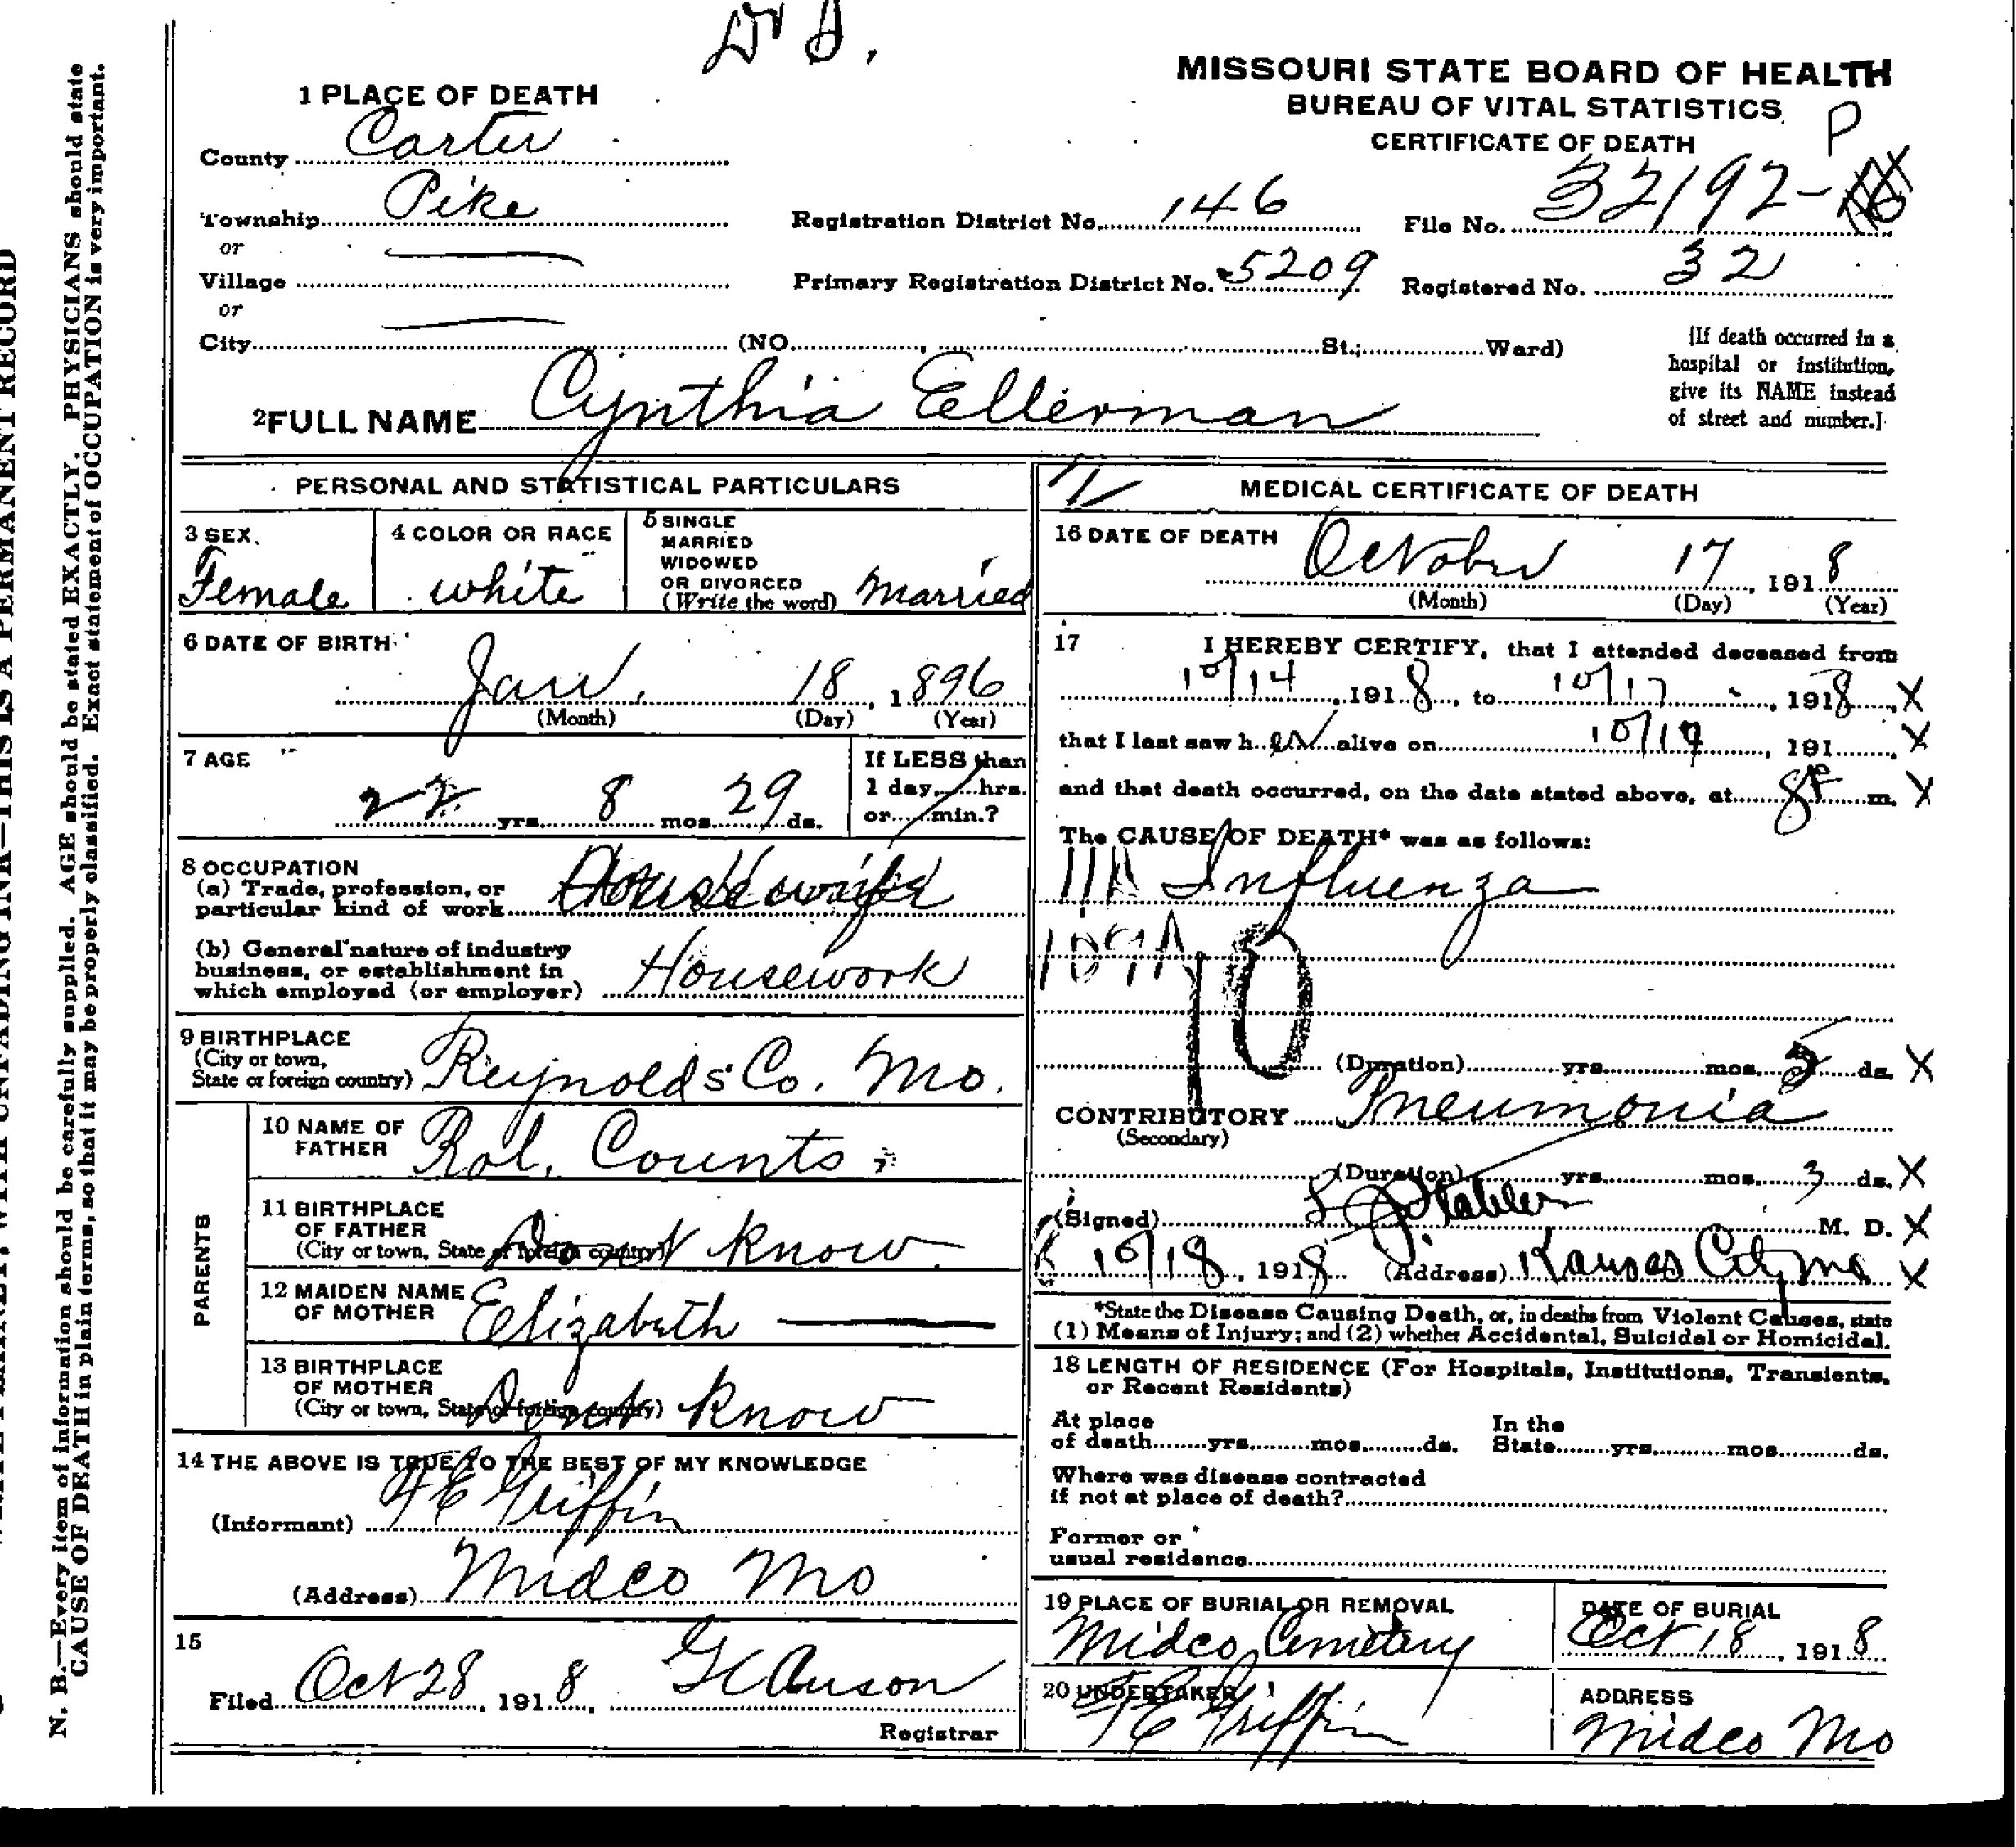 Dr J.
MISSOURI STATE BOARD OF HEALTH
BUREAU OF VITAL STATISTICS
CERTIFICATE OF DEATH
P
1 PLACE OF DEATH
County Carter
Township Pike
or
Village
or
City (NO. St.; Ward)
Registration District No. 146
File No. 32192-
Primary Registration District No. 5209
Registered No. 32
[If death occurred in a
hospital or institution,
give its NAME instead
of street and number.]
2 FULL NAME Cynthia Ellerman
PERSONAL AND STATISTICAL PARTICULARS
3 SEX. Female
4 COLOR OR RACE white
5 SINGLE
MARRIED
WIDOWED
OR DIVORCED
(Write the word) Married
6 DATE OF BIRTH
Jan. 18, 1896
(Month) (Day) (Year)
7 AGE
22 yrs. 8 mos. 29 ds.
If LESS than
1 day, hrs.
or min.?
8 OCCUPATION
(a) Trade, profession, or
particular kind of work Housewife
(b) General nature of industry
business, or establishment in
which employed (or employer) Housework
9 BIRTHPLACE
(City or town,
State or foreign country) Reynolds Co. Mo.
PARENTS
10 NAME OF
FATHER Rol. Counts
11 BIRTHPLACE
OF FATHER
(City or town, State or foreign country) Dont know
12 MAIDEN NAME
OF MOTHER Elizabeth
13 BIRTHPLACE
OF MOTHER
(City or town, State or foreign country) Dont know
14 THE ABOVE IS TRUE TO THE BEST OF MY KNOWLEDGE
(Informant) F E Griffin
(Address) Midco Mo
15
Filed Oct 28, 1918,
Registrar
MEDICAL CERTIFICATE OF DEATH
16 DATE OF DEATH
October 17, 1918
(Month) (Day) (Year)
17 I HEREBY CERTIFY, that I attended deceased from
10/14, 1918, to 10/17, 1918, X
that I last saw her alive on 10/17, 191 , X
and that death occurred, on the date stated above, at 8P m. X
The CAUSE OF DEATH* was as follows:
11A Influenza
10
(Duration) yrs. mos. 5 ds. X
CONTRIBUTORY Pneumonia
(Secondary)
(Duration) yrs. mos. 3 ds. X
(Signed) M. D. X
10/18, 1918 (Address) Kansas City Mo X
*State the Disease Causing Death, or, in deaths from Violent Causes, state
(1) Means of Injury; and (2) whether Accidental, Suicidal or Homicidal.
18 LENGTH OF RESIDENCE (For Hospitals, Institutions, Transients,
or Recent Residents)
At place
of death yrs. mos. ds.
In the
State yrs. mos. ds.
Where was disease contracted
if not at place of death?
Former or
usual residence
19 PLACE OF BURIAL OR REMOVAL
Midco Cemetery
DATE OF BURIAL
Oct 18, 1918
20 UNDERTAKER
F E Griffin
ADDRESS
Midco Mo
N. B.—Every item of information should be carefully supplied. AGE should be stated EXACTLY. PHYSICIANS should state
CAUSE OF DEATH in plain terms, so that it may be properly classified. Exact statement of OCCUPATION is very important.
THIS IS A PERMANENT RECORD